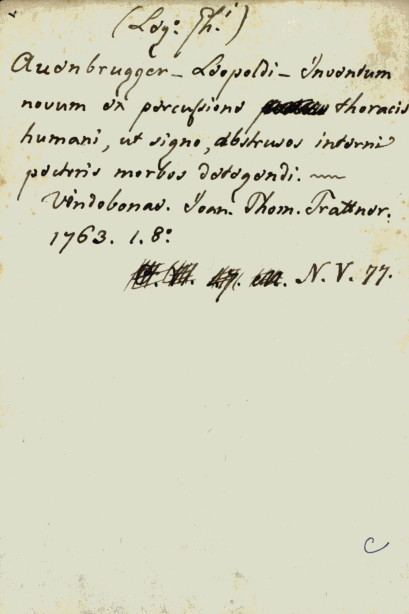 Auenbrugger – Leopoldi – Inventum
novum ex percussione thoracis
humani, ut signo, abstrusos interni
pectoris morbos detegendi.
Vindobonae. Joan. Thom. Trattner.
1763. 1. 8º
N. V. 77.
C